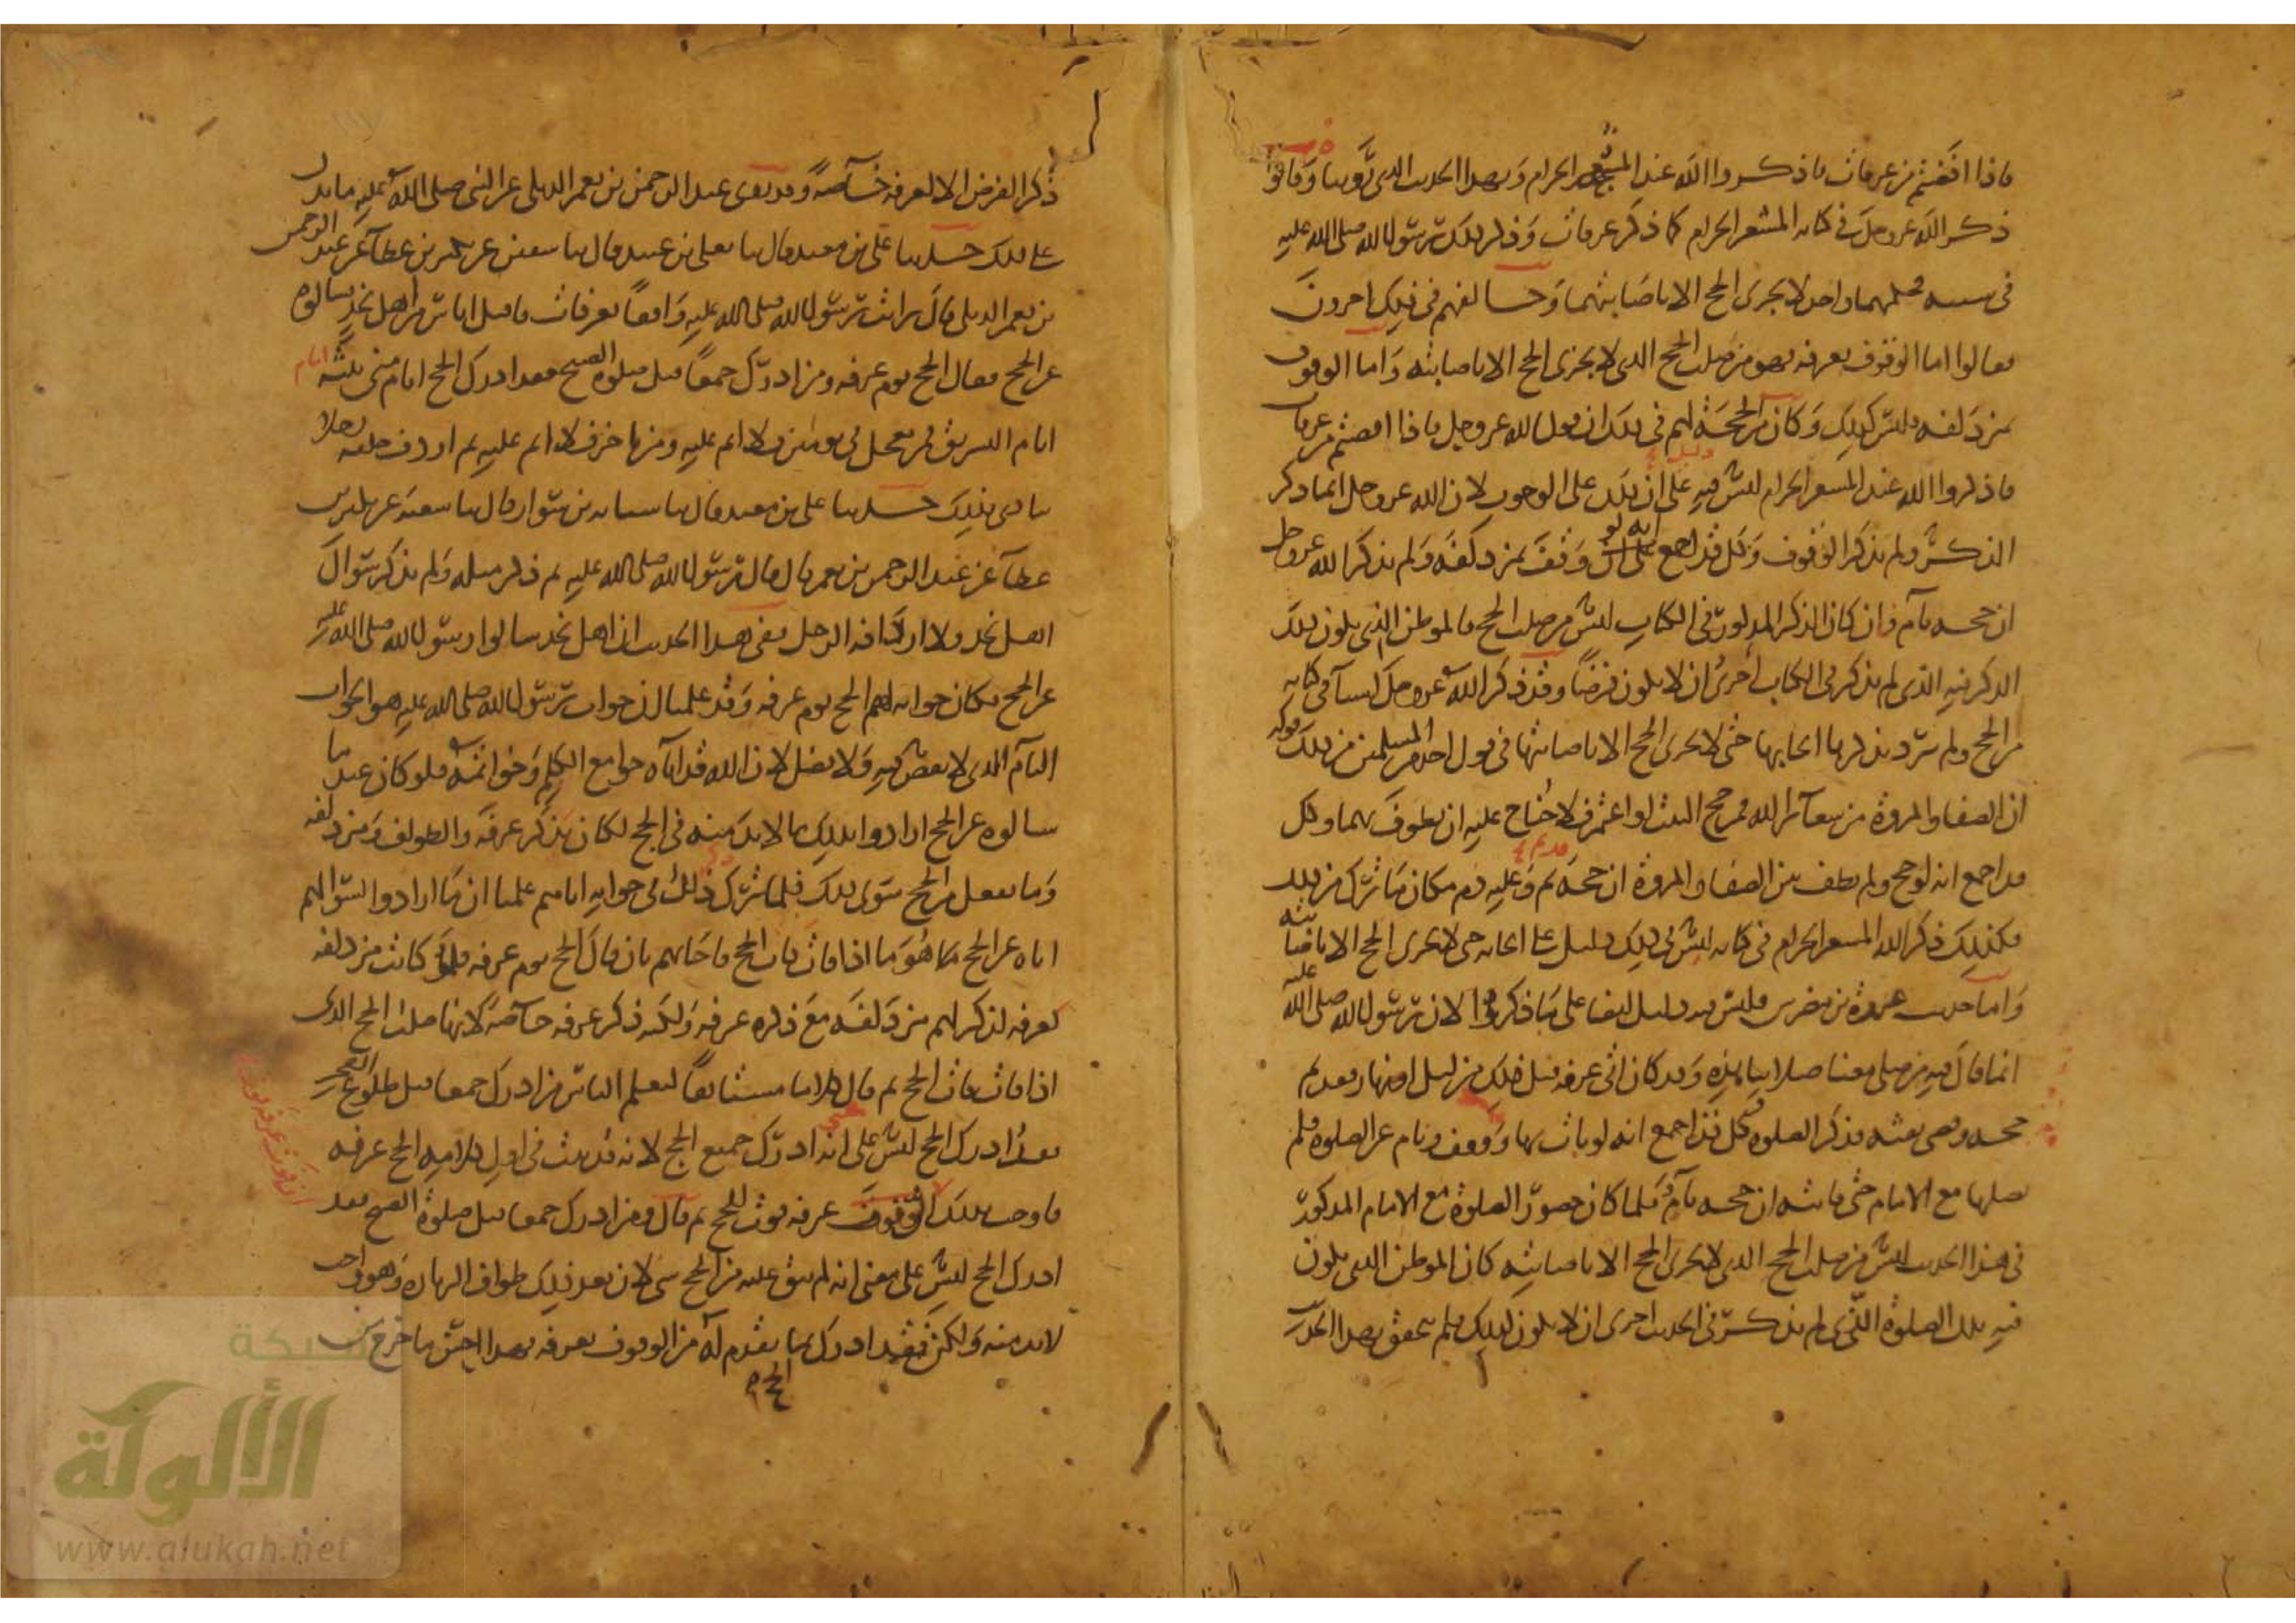 فاذا افضتم من عرفات فاذكروا الله عند المشعر الحرام وبهذا الحديث الذي روينا وقالوا
ذكر الله عز وجل في كتابه المشعر الحرام كما ذكر عرفات وذكر ذلك رسول الله صلى الله عليه
في سننه فحكمهما واحد لا يجزى الحج الا باصابتهما وخالفهم في ذلك اخرون
فقالوا اما الوقوف بعرفة فهو من صلب الحج الذي لا يجزى الحج الا باصابته واما الوقوف
بمزدلفة فليس كذلك وكان من الحجة لهم في ذلك ان قول الله عز وجل فاذا افضتم من عرفات
فاذكروا الله عند المشعر الحرام ليس فيه دليل على ان ذلك على الوجوب لان الله عز وجل انما ذكر
الذكر ولم يذكر الوقوف وكل قد اجمع على انه لو وقف بمزدلفة ولم يذكر الله عز وجل
ان حجه تام فان كان الذكر المذكور في الكتاب ليس من صلب الحج فالموطن الذي يكون ذلك
الذكر فيه الذي لم يذكر في الكتاب احرى ان لا يكون فرضا وقد ذكر الله عز وجل اشيا في كتابه
من الحج ولم يرد بذكرها ايجابها حتى لا يجزى الحج الا باصابتها في قول احد من المسلمين من ذلك قوله
ان الصفا والمروة من شعائر الله فمن حج البيت او اعتمر فلا جناح عليه ان يطوف بهما وكل
قد اجمع انه لو حج ولم يطف بين الصفا والمروة ان حجه قد تم وعليه دم مكان ما ترك من ذلك
فكذلك ذكر الله المشعر الحرام في كتابه ليس في ذلك دليل على ايجابه حتى لا يجزى الحج الا باصابته
واما حديث عروة بن مضرس فليس فيه دليل ايضا على ما ذكروا لان رسول الله صلى الله عليه
انما قال فيه من صلى معنا صلاتنا هذه وقد كان اتى عرفة قبل ذلك من ليل او نهار فقد تم
حجه وقضى تفثه فذكر الصلوة وكل قد اجمع انه لو بات بها ووقف ونام عن الصلوة فلم
يصلها مع الامام حتى فاتته ان حجه تام فلما كان حضور الصلوة مع الامام المذكور
في هذا الحديث ليس من صلب الحج الذي لا يجزى الحج الا باصابته كان الموطن الذي يكون
فيه تلك الصلوة الذي لم يذكر في الحديث احرى ان لا يكون كذلك فلم يتحقق بهذا الحديث
ذكر الفرض الا لعرفة خاصة وقد روى عبد الرحمن بن يعمر الديلي عن النبي صلى الله عليه ما يدل
على ذلك حدثنا علي بن معبد قال ثنا يعلى بن عبيد قال ثنا سفين عن بكير بن عطا عن عبد الرحمن
بن يعمر الديلي قال رايت رسول الله صلى الله عليه واقفا بعرفات فاقبل اناس من اهل نجد فسالوه
عن الحج فقال الحج يوم عرفة ومن ادرك جمعا قبل صلوة الصبح فقد ادرك الحج ايام منى ثلثة ايام
ايام التشريق فمن تعجل في يومين فلا اثم عليه ومن تاخر فلا اثم عليه ثم اردف خلفه رجلا
ينادي بذلك حدثنا علي بن معبد قال ثنا شبابة بن سوار قال ثنا شعبة عن بكير بن
عطا عن عبد الرحمن بن يعمر قال قال رسول الله صلى الله عليه ثم ذكر مثله ولم يذكر سوال
اهل نجد ولا اردافه الرجل ففي هذا الحديث ان اهل نجد سالوا رسول الله صلى الله عليه
عن الحج فكان جوابه لهم الحج يوم عرفة وقد علمنا ان جواب رسول الله صلى الله عليه هو الجواب
التام الذي لا نقص فيه ولا فضل لان الله قد اتاه جوامع الكلم وخواتمه فلو كان عند ما
سالوه عن الحج ارادوا بذلك ما لا بد منه في الحج لكان يذكر عرفة والطواف ومزدلفة
وما يفعل من الحج سوى ذلك فلما ترك ذلك في جوابه اياهم علمنا ان ما ارادوا بسوالهم
اياه عن الحج ما هو ما اذا فات فات الحج فاجابهم بان قال الحج يوم عرفة فلو كانت مزدلفة
كعرفة لذكر لهم مزدلفة مع ذكره عرفة ولكنه ذكر عرفة خاصة لانها صلب الحج الذي
اذا فات فات الحج ثم قال كلاما مستانفا ليعلم الناس من ادرك جمعا قبل طلوع الفجر
فقد ادرك الحج ليس على معنى انه ادرك جميع الحج لانه قد ثبت في اول كلامه الحج عرفة
فاوجب بذلك ان فوت عرفة فوت الحج ثم قال ومن ادرك جمعا قبل صلوة الصبح فقد
ادرك الحج ليس على معنى انه لم يبق عليه من الحج شي لان بعد ذلك طواف الزيارة وهو واجب
لا بد منه ولكن فقد ادرك الحج بما تقدم له من الوقوف بعرفة فهذا احسن ما خرج من
شبكة
الألوكة
www.alukah.net